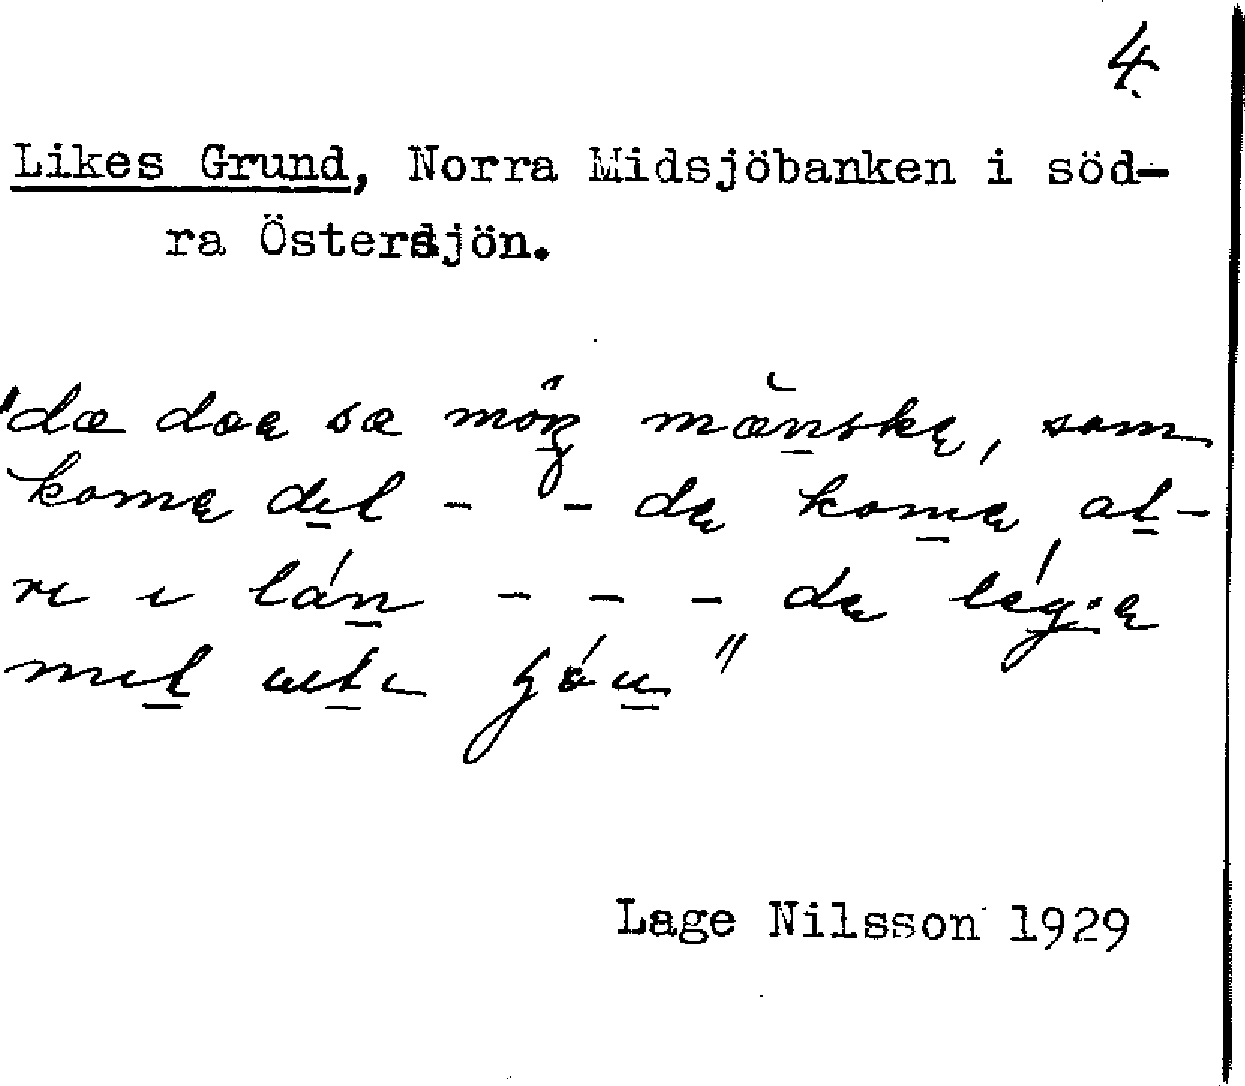 4.
Likes Grund, Norra Midsjöbanken i söd-
ra Östersjön.
"dœ doe sœ mœnske, som
kome del - - de kome al-
re i lán - - - de
mel
Lage Nilsson 1929